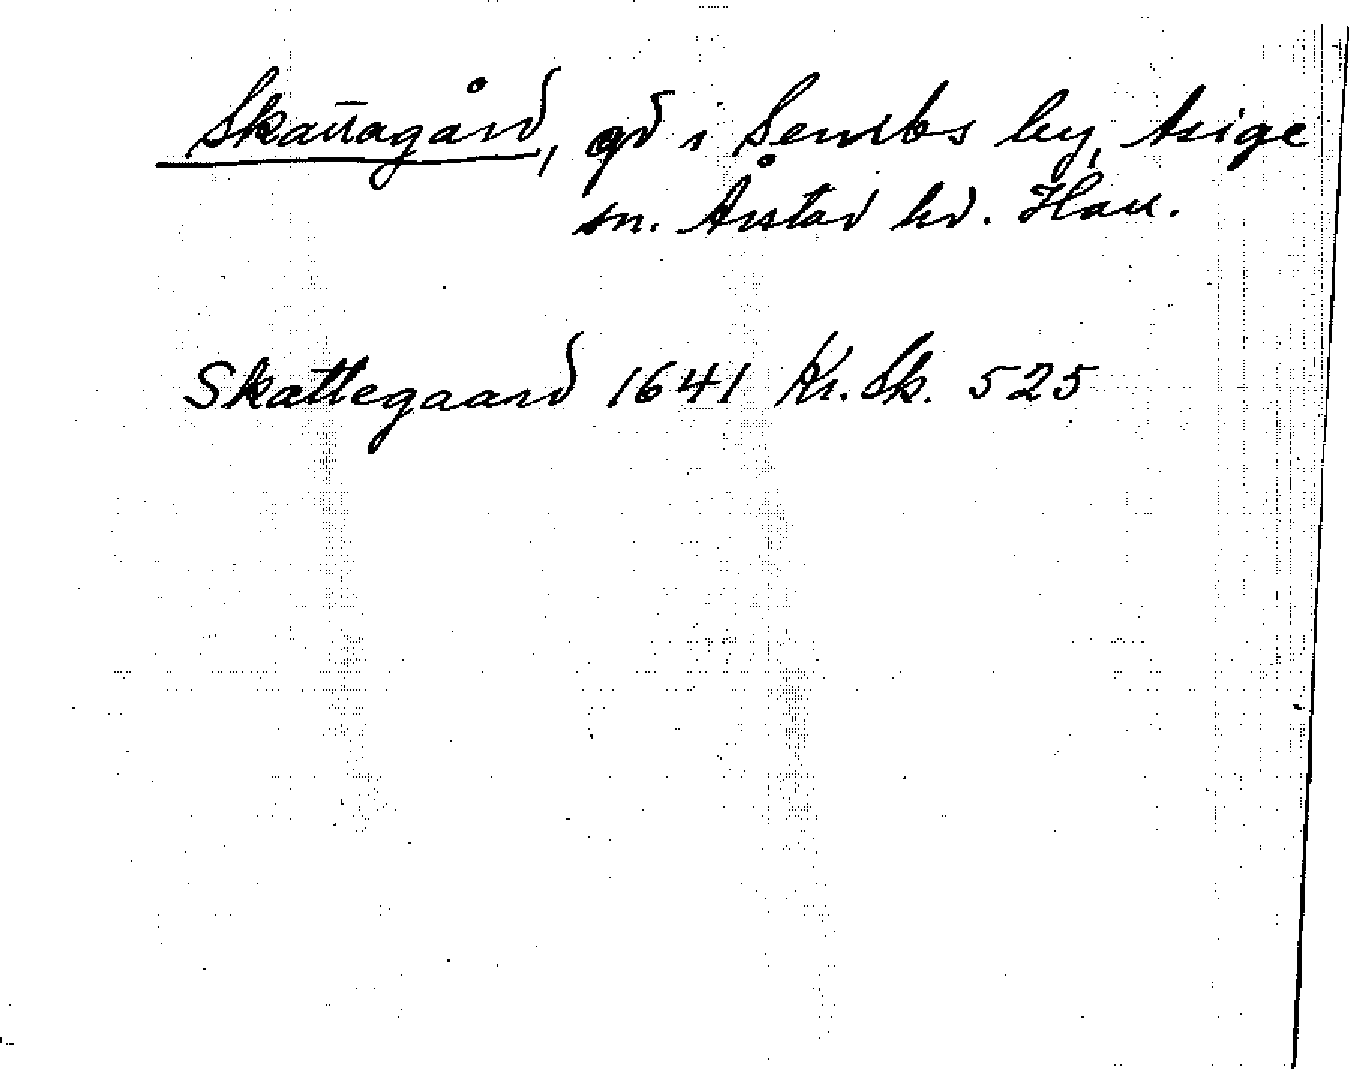 Skattagård, gd i Sembs by, Asige
sn. Årstad hd. Hall.
Skattegaard 1641 Kr. Sk. 525